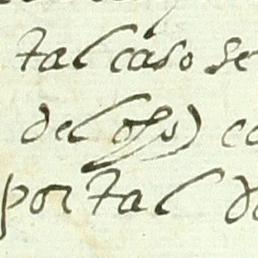 tal caso se
del oso) co
portal d